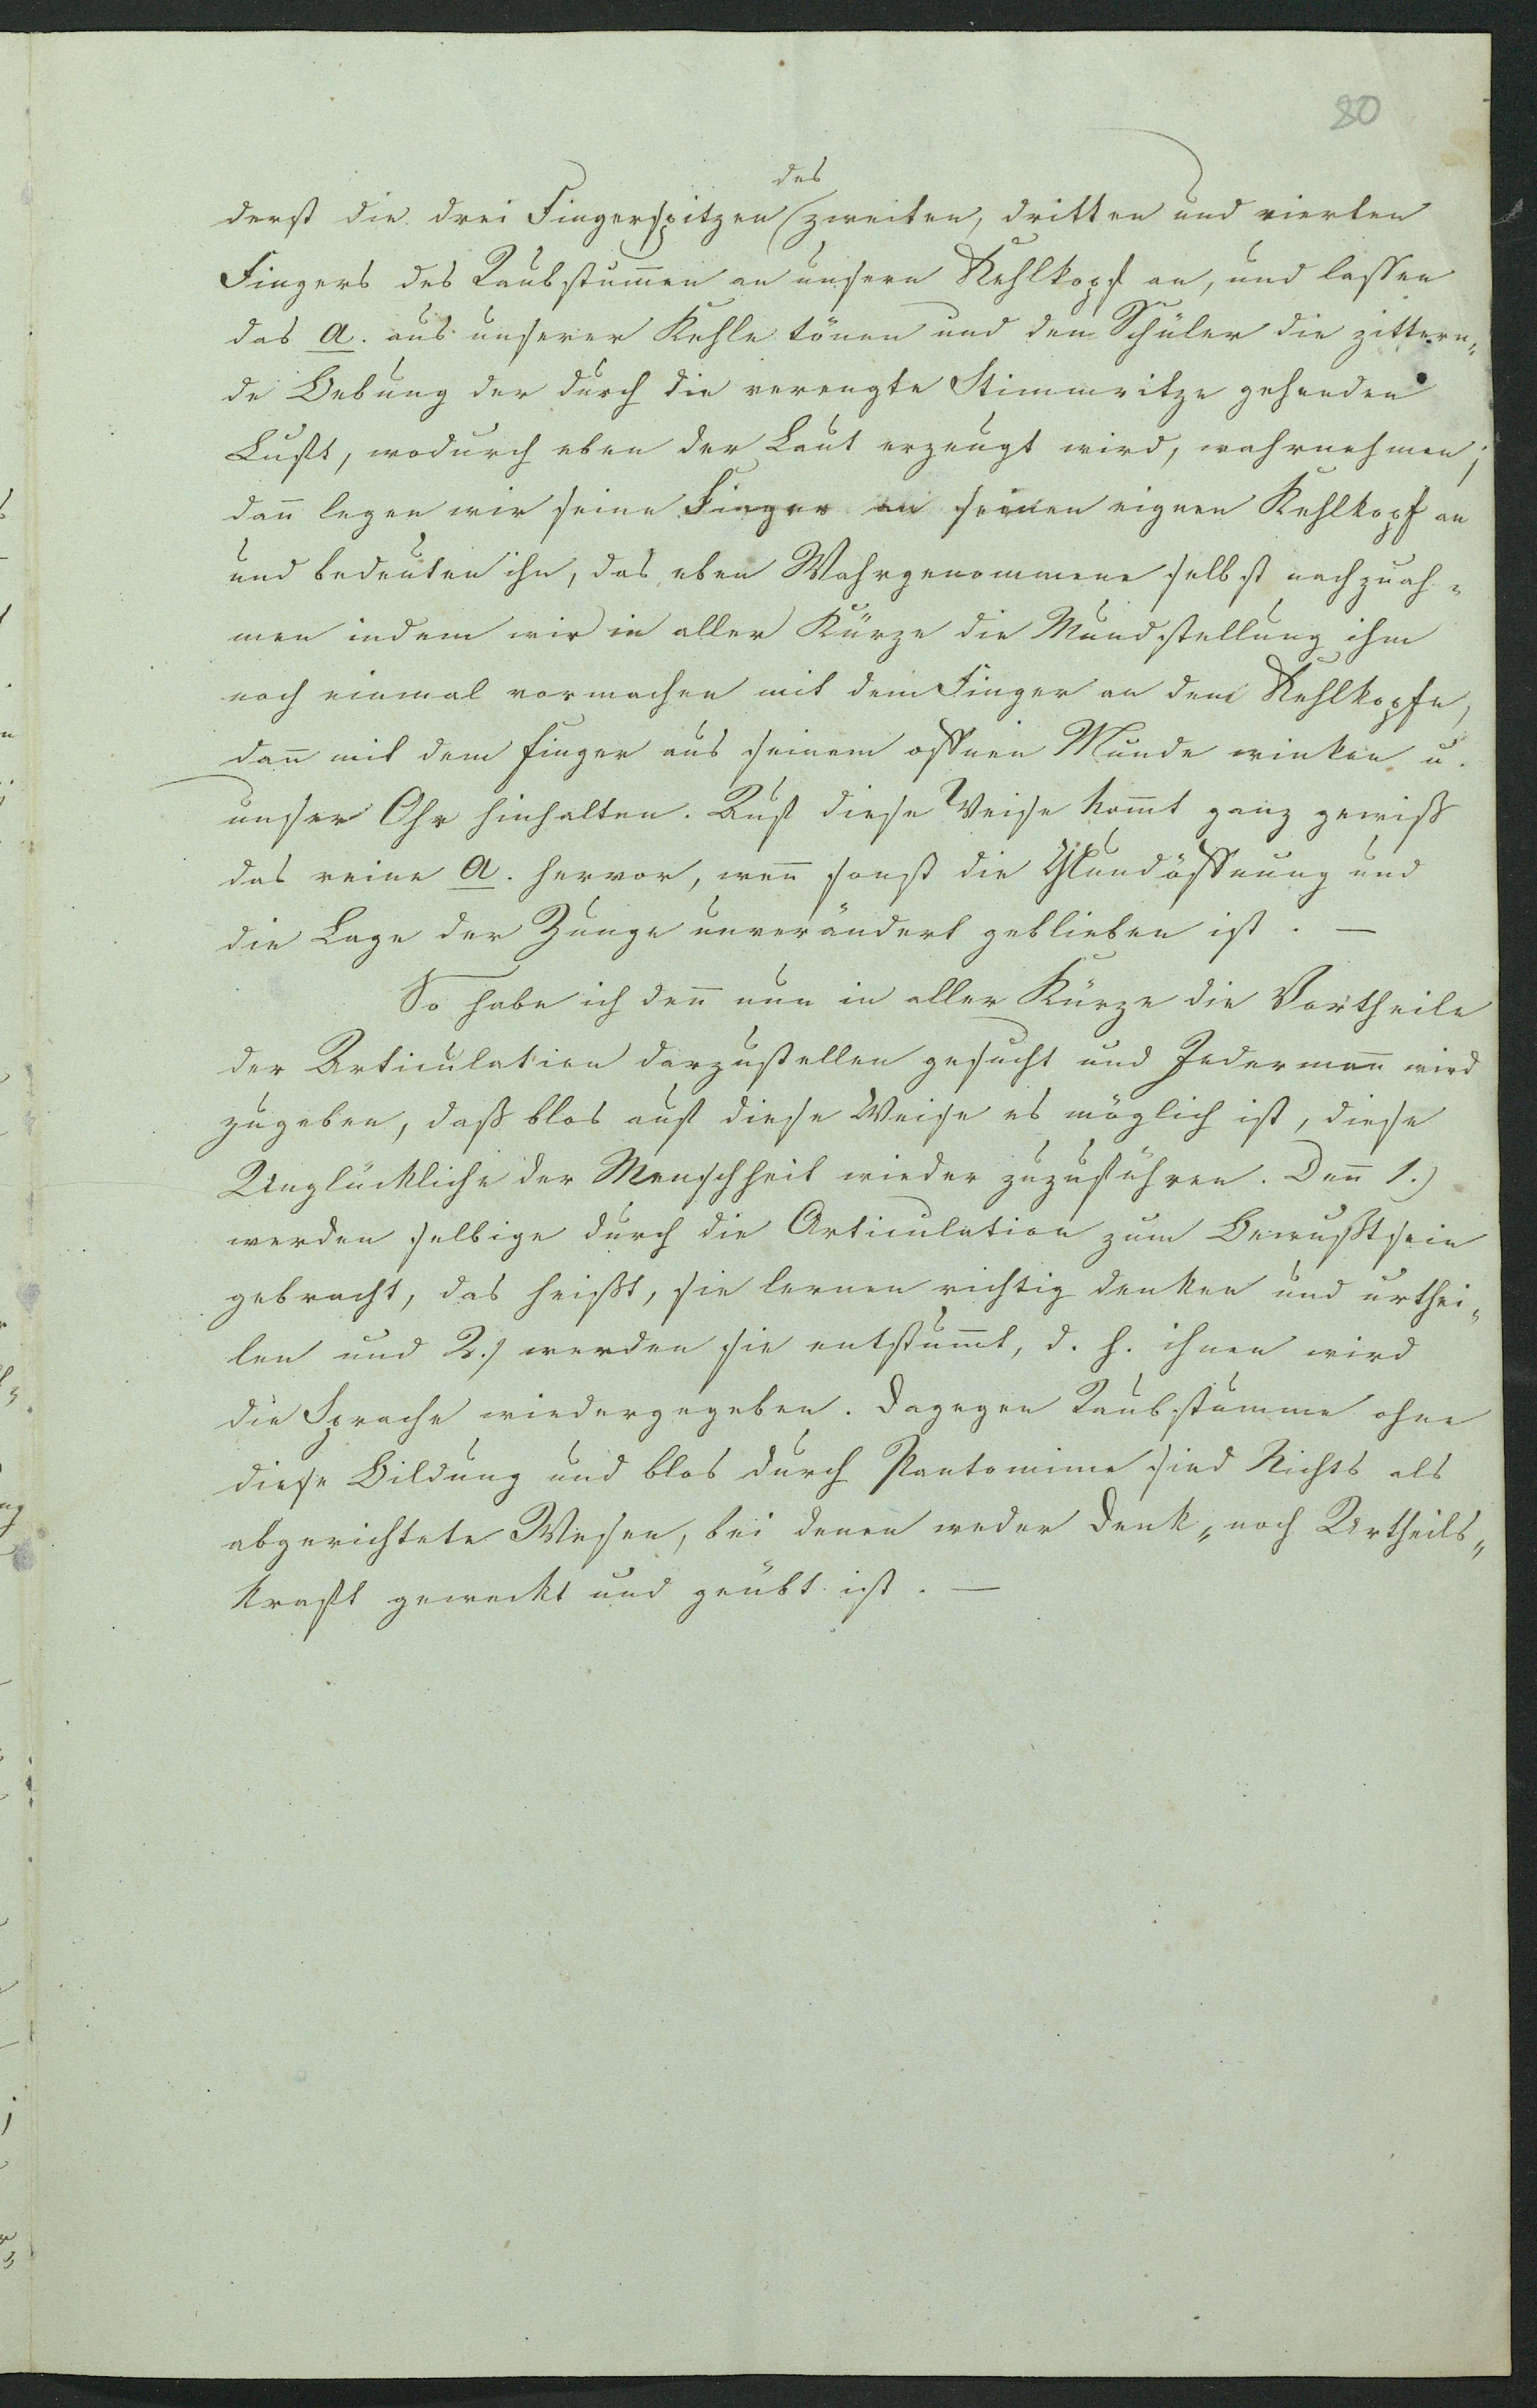 80
des
derst die drei Fingerspitzen zweiten, dritten und vierten
Fingers des Taubstum̅en an unsern Kehlkopf an, und lassen
das a. aus unserer Kehle tönen und dem Schüler die zittern„
de Bebung der durch die verengte Stimmritze gehenden
Luft, wodurch eben der Laut erzeugt wird, wahrnehmen;
dan̅ legen wir seine Finger an seinen eignen Kehlkopf an
und bedeuten ihn, das eben Wahrgenommene selbst nachzuah„
men indem wir in aller Kürze die Mundstellung ihm
noch einmal vormachen mit dem Finger an dem Kehlkopfe,
dan̅ mit dem Finger aus seinem offnen Munde winken u.
unser Ohr hinhalten. Auf diese Weise kom̅t ganz gewiß
das reine a. hervor, wen̅ sonst die Mundöffnung und
die Lage der Zunge unverändert geblieben ist. —
So habe ich den̅ nun in aller Kürze die Vortheile
der Articulation darzustellen gesucht und Jederman̅ wird
zugeben, daß blos auf diese Weise es möglich ist, diese
Unglückliche der Menschheit wieder zuzuführen. Den̅ 1.)
werden selbige durch die Articulation zum Bewußtsein
gebracht, das heißt, sie lernen richtig denken und urthei„
len und 2.) werden sie entstum̅t, d. h. ihnen wird
die Sprache wiedergegeben. Dagegen Taubstumme ohne
diese Bildung und blos durch Pantomime sind Nichts als
abgerichtete Wesen, bei denen weder Denk„ noch Urtheils„
kraft geweckt und geübt ist. —